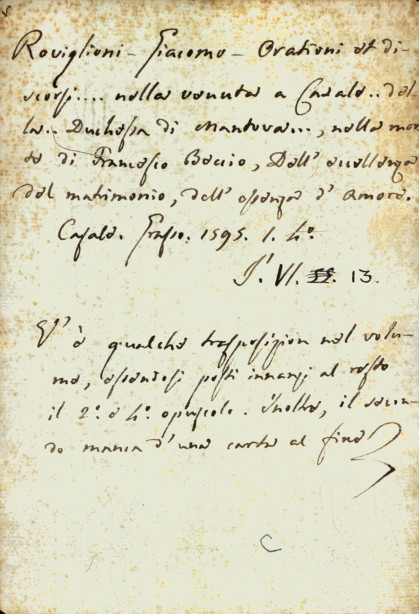 Roviglioni - Giacomo - Orationi et di-
scorsi.... nella venuta a Casale.. del-
la.. Duchessa di Mantova..., nella mor-
te di Francesco Beccio, Dell' eccellenza
del matrimonio, dell' essenza d' Amore.
Casale. Grasso. 1595. 1. 4º.
J. VI. 13.
V' è qualche trasposizion nel volu-
me, essendosi posti innanzi al resto
il 2º. e 4º. opuscolo. Inoltre, il secon-
do manca d' una carta al fine
C